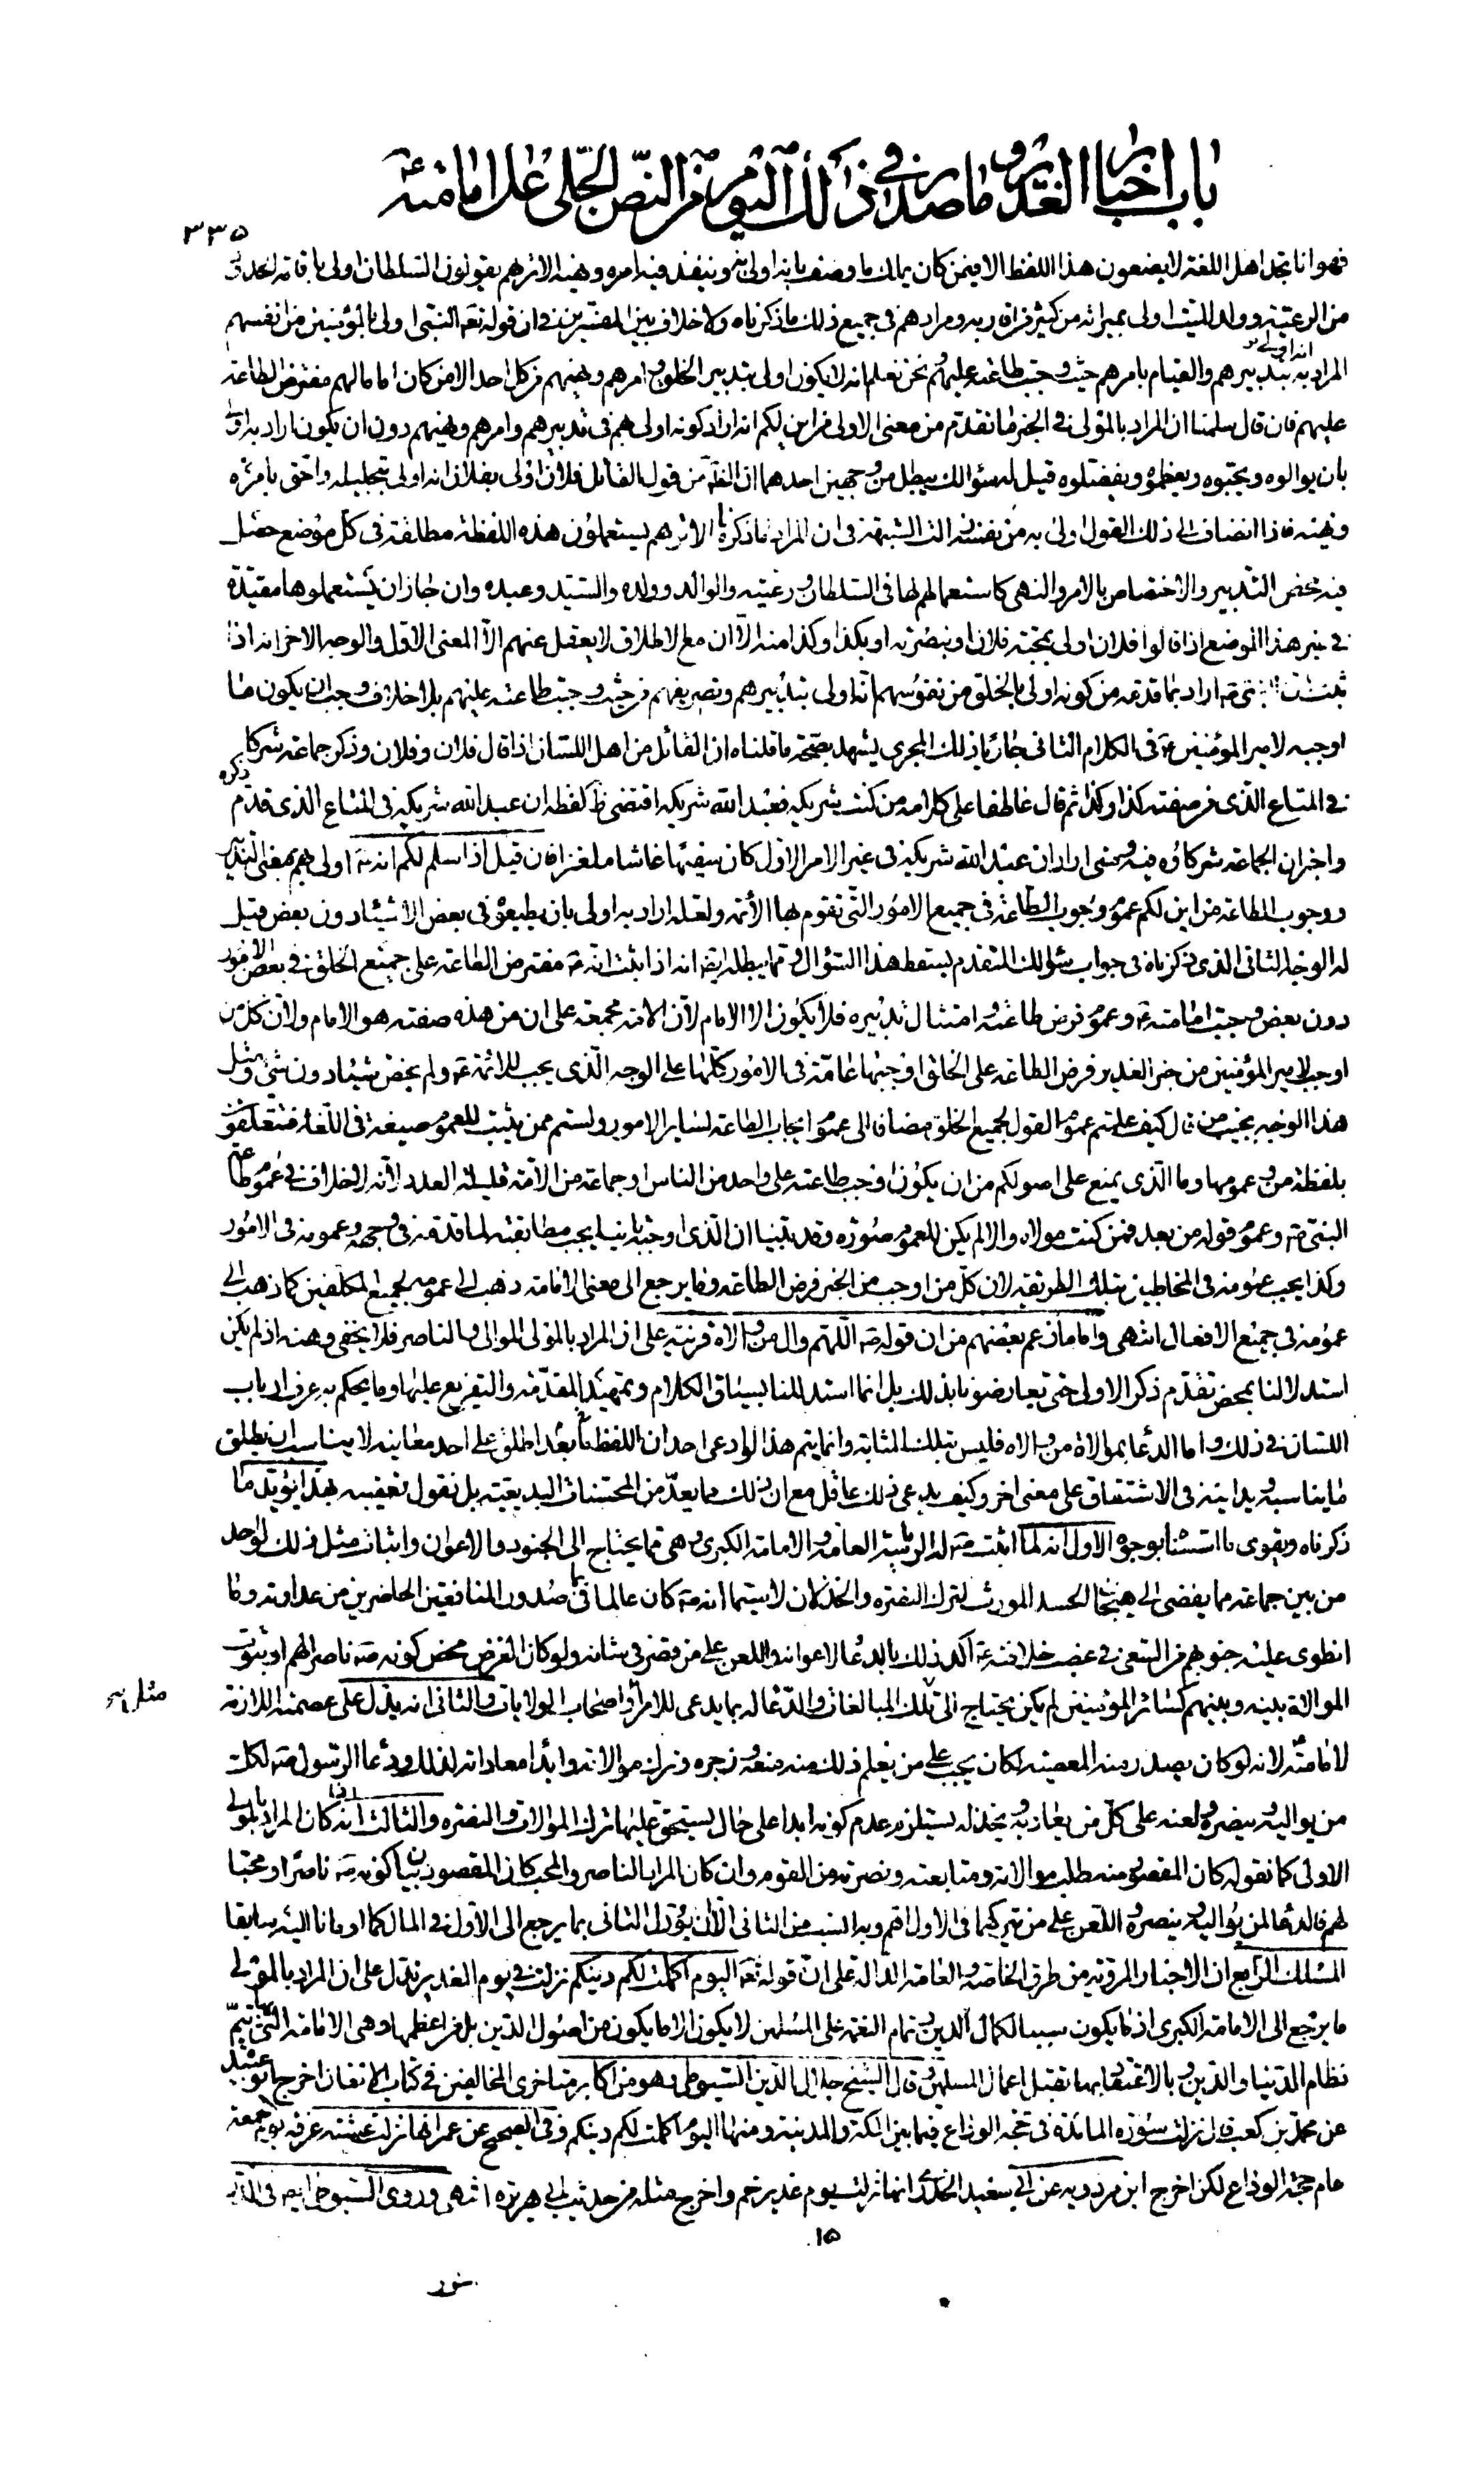 باب اخبار الغدير وما صدر في ذلك اليوم من النص الجلي على امامته
٣٣٥
فهو انا نجد اهل اللغة لا يضعون هذا اللفظ الا فيمن كان يملك ما وصف بانه اولى به وينفذ فيه امره ونهيه الا ترهم يقولون السلطان اولى باقامة الحدود
من الرعية وولد الميت اولى بميراثه من كثير من اقاربه ومرادهم في جميع ذلك ما ذكرناه ولا خلاف بين المفسرين في ان قوله تعه النبي اولى بالمؤمنين من انفسهم
المراد به انه اولى بتدبيرهم والقيام بامرهم حيث وجبت طاعته عليهم ونحن نعلم انه لا يكون اولى بتدبير الخلق وامرهم ونهيهم من كل احد الا من كان اماما لهم مفترض الطاعة
عليهم فان قال سلمنا ان المراد بالمولى في الخبر ما تقدم من معنى الاولى من اين لكم انه اراد كونه اولى بهم في تدبيرهم وامرهم ونهيهم دون ان يكون اراد به اولى
بان يوالوه ويحبوه ويعظموه ويفضلوه قيل له سؤالك يبطل من وجهين احدهما ان الظه من قول القائل فلان اولى بفلان انه اولى بتجليله واحق بامره
ونهيه فاذا انضاف الى ذلك القول اولى به من نفسه زالت الشبهة في ان المراد ما ذكرناه الا ترهم يستعملون هذه اللفظة مطلقة في كل موضع حصل
فيه محض التدبير والاختصاص بالامر والنهي كاستعمالهم لها في السلطان ورعيته والوالد وولده والسيد وعبده وان جاز ان يستعملوها مقيدة
في غير هذا الموضع اذا قالوا فلان اولى بمحبة فلان او بنصرته او بكذا وكذا منه الا ان مع الاطلاق لا يعقل عنهم الا المعنى الاول والوجه الاخر انه اذا
ثبت ان النبي صه اراد بما قدمه من كونه اولى بالخلق من نفوسهم انه اولى بتدبيرهم وتصريفهم من حيث وجبت طاعته عليهم بلا خلاف وجب ان يكون ما
اوجبه لامير المؤمنين ع في الكلام الثاني جاريا ذلك المجرى يشهد بصحة ما قلناه ان القائل من اهل اللسان اذا قال فلان وفلان وذكر جماعة شركا
في المتاع الذي من صفته كذا وكذا ثم قال عاطفا على كلامه من كنت شريكه فعبد الله شريكه اقتضى ظ لفظه ان عبد الله شريكه في المتاع الذي قدم ذكره
واخبر ان الجماعة شركاؤه فيه ومتى اراد ان عبد الله شريكه في غير الامر الاول كان سفيها غاشا ملغزا فان قيل اذا سلم لكم انه صه اولى بهم بمعنى التدبير
ووجوب الطاعة من اين لكم عموم وجوب الطاعة في جميع الامور التي تقوم بها الأئمة ولعله اراد به اولى بان يطيعوه في بعض الاشياء دون بعض قيل
له الوجه الثاني الذي ذكرناه في جواب سؤالك المتقدم يسقط هذا السؤال ومما يبطله ايضه انه اذا ثبت انه صه مفترض الطاعة على جميع الخلق في بعض الامور
دون بعض وجبت امامته ع وعموم فرض طاعته وامتثال تدبيره فلا يكون الا الامام لان الامة مجمعة على ان من هذه صفته هو الامام ولان كل من
اوجب لامير المؤمنين من خبر الغدير فرض الطاعة على الخلق اوجبها عامة في الامور كلها على الوجه الذي يجب للائمة ع ولم يخص شيئا دون شئ وبمثل
هذا الوجه نجيب من قال كيف علمتم عموم القول لجميع الخلق مضافا الى عموم ايجاب الطاعة لساير الامور ولستم ممن يثبت للعموم صيغة في اللغة فتتعلقون
بلفظة من وعمومها وما الذي يمنع على اصولكم من ان يكون اوجب طاعته على واحد من الناس او جماعة من الامة قليلة العدد لانه لا خلاف في عموم طاعة
النبي صه وعموم قوله من بعد فمن كنت مولاه والا لم يكن للعموم صورة وقد بينا ان الذي اوجبه ثانيا يجب مطابقته لما قدمه في وجهه وعمومه في الامور
وكذا يجب عمومه في المخاطبين بتلك الطريقة لان كل من اوجب من الخبر فرض الطاعة وما يرجع الى معنى الامامة ذهب الى عمومه لجميع المكلفين كما ذهب الى
عمومه في جميع الافعال انتهى واما ما زعم بعضهم من ان قوله صه اللهم وال من والاه قرينة على ان المراد بالمولى الموالي والناصر فلا يخفى وهنه اذ لم يكن
استدلالنا بمحض تقدم ذكر الاولى حتى تعارضونا بذلك بل انما استدللنا بسياق الكلام وتمهيد المقدمة والتفريع عليها وما يحكم به عرف ارباب
اللسان في ذلك واما الدعا بموالاة من والاه فليس بتلك المثابة وانما يتم هذا لو ادعى احد ان اللفظ بعد ما اطلق على احد معانيه لا يناسب ان يطلق
ما يناسبه ويدانيه في الاشتقاق على معنى اخر وكيف يدعي ذلك عاقل مع ان ذلك مما يعد من المحسنات البديعية بل نقول تعقيبه بهذا يؤيد ما
ذكرناه ويقوي ما اسسناه بوجوه الاول انه لما اثبت صه له الرئاسة العامة والامامة الكبرى وهي مما يحتاج الى الجنود والاعوان واثبات مثل ذلك لواحد
من بين جماعة مما يفضي الى هيجان الحسد المورث لترك النصرة والخذلان لا سيما انه صه كان عالما بما في صدور المنافقين الحاضرين من عداوته وما
انطوى عليه جنوبهم من السعي في غصب خلافته ع اكد ذلك بالدعا لاعوانه واللعن على من قصر في شانه ولو كان الغرض محض كونه صه ناصرا لهم او ثبوت
الموالاة بينه وبينهم كسائر المؤمنين لم يكن يحتاج الى مثل تلك المبالغات والدعا له بما يدعى للامراء واصحاب الولايات والثاني انه يدل على عصمته اللازمة
لامامته لانه لو كان يصدر منه المعصية لكان يجب على من يعلم ذلك منه منعه وزجره وترك موالاته وابدا معاداته لذلك ودعا الرسول صه لكل
من يواليه وينصره ولعنه على كل من يعاديه ويخذله يستلزم عدم كونه ابدا على حال يستحق عليها ترك الموالات والنصرة والثالث انه اذا كان المراد بالمولى
الاولى كما نقوله كان المقصود منه طلب موالاته ومتابعته ونصرته من القوم وان كان المراد الناصر والمحب كان المقصود بيان كونه صه ناصرا ومحبا
لهم فالدعا لمن يواليه وينصره واللعن على من تركهما في الاول اهم وبه انسب من الثاني الا ان يؤول الثاني بما يرجع الى الاول في المال كما اومانا اليه سابقا
المسلك الرابع ان الاخبار المروية من طرق الخاصة والعامة الدالة على ان قوله تعه اليوم اكملت لكم دينكم نزلت في يوم الغدير تدل على ان المراد بالمولى
ما يرجع الى الامامة الكبرى اذ ما يكون سببا لكمال الدين وتمام النعمة على المسلمين لا يكون الا ما يكون من اصول الدين بل من اعظمها وهي الامامة التي بها تتم
نظام الدنيا والدين وبالاعتقاد بها تقبل اعمال المسلمين وقال الشيخ جلال الدين السيوطي وهو من اكابر متاخري المخالفين في كتاب الاتقان اخرج ابو عبيد
عن محمد بن كعب قال نزلت سورة المائدة في حجة الوداع فيما بين مكة والمدينة ومنها اليوم اكملت لكم دينكم وفي الصحيح عن عمر انها نزلت عشية عرفة يوم جمعة
عام حجة الوداع لكن اخرج ابن مردويه عن ابي سعيد الخدري انها نزلت يوم غدير خم واخرج مثله من حديث ابي هريرة انتهى وروى السيوطي ايضه في الدر
١٥